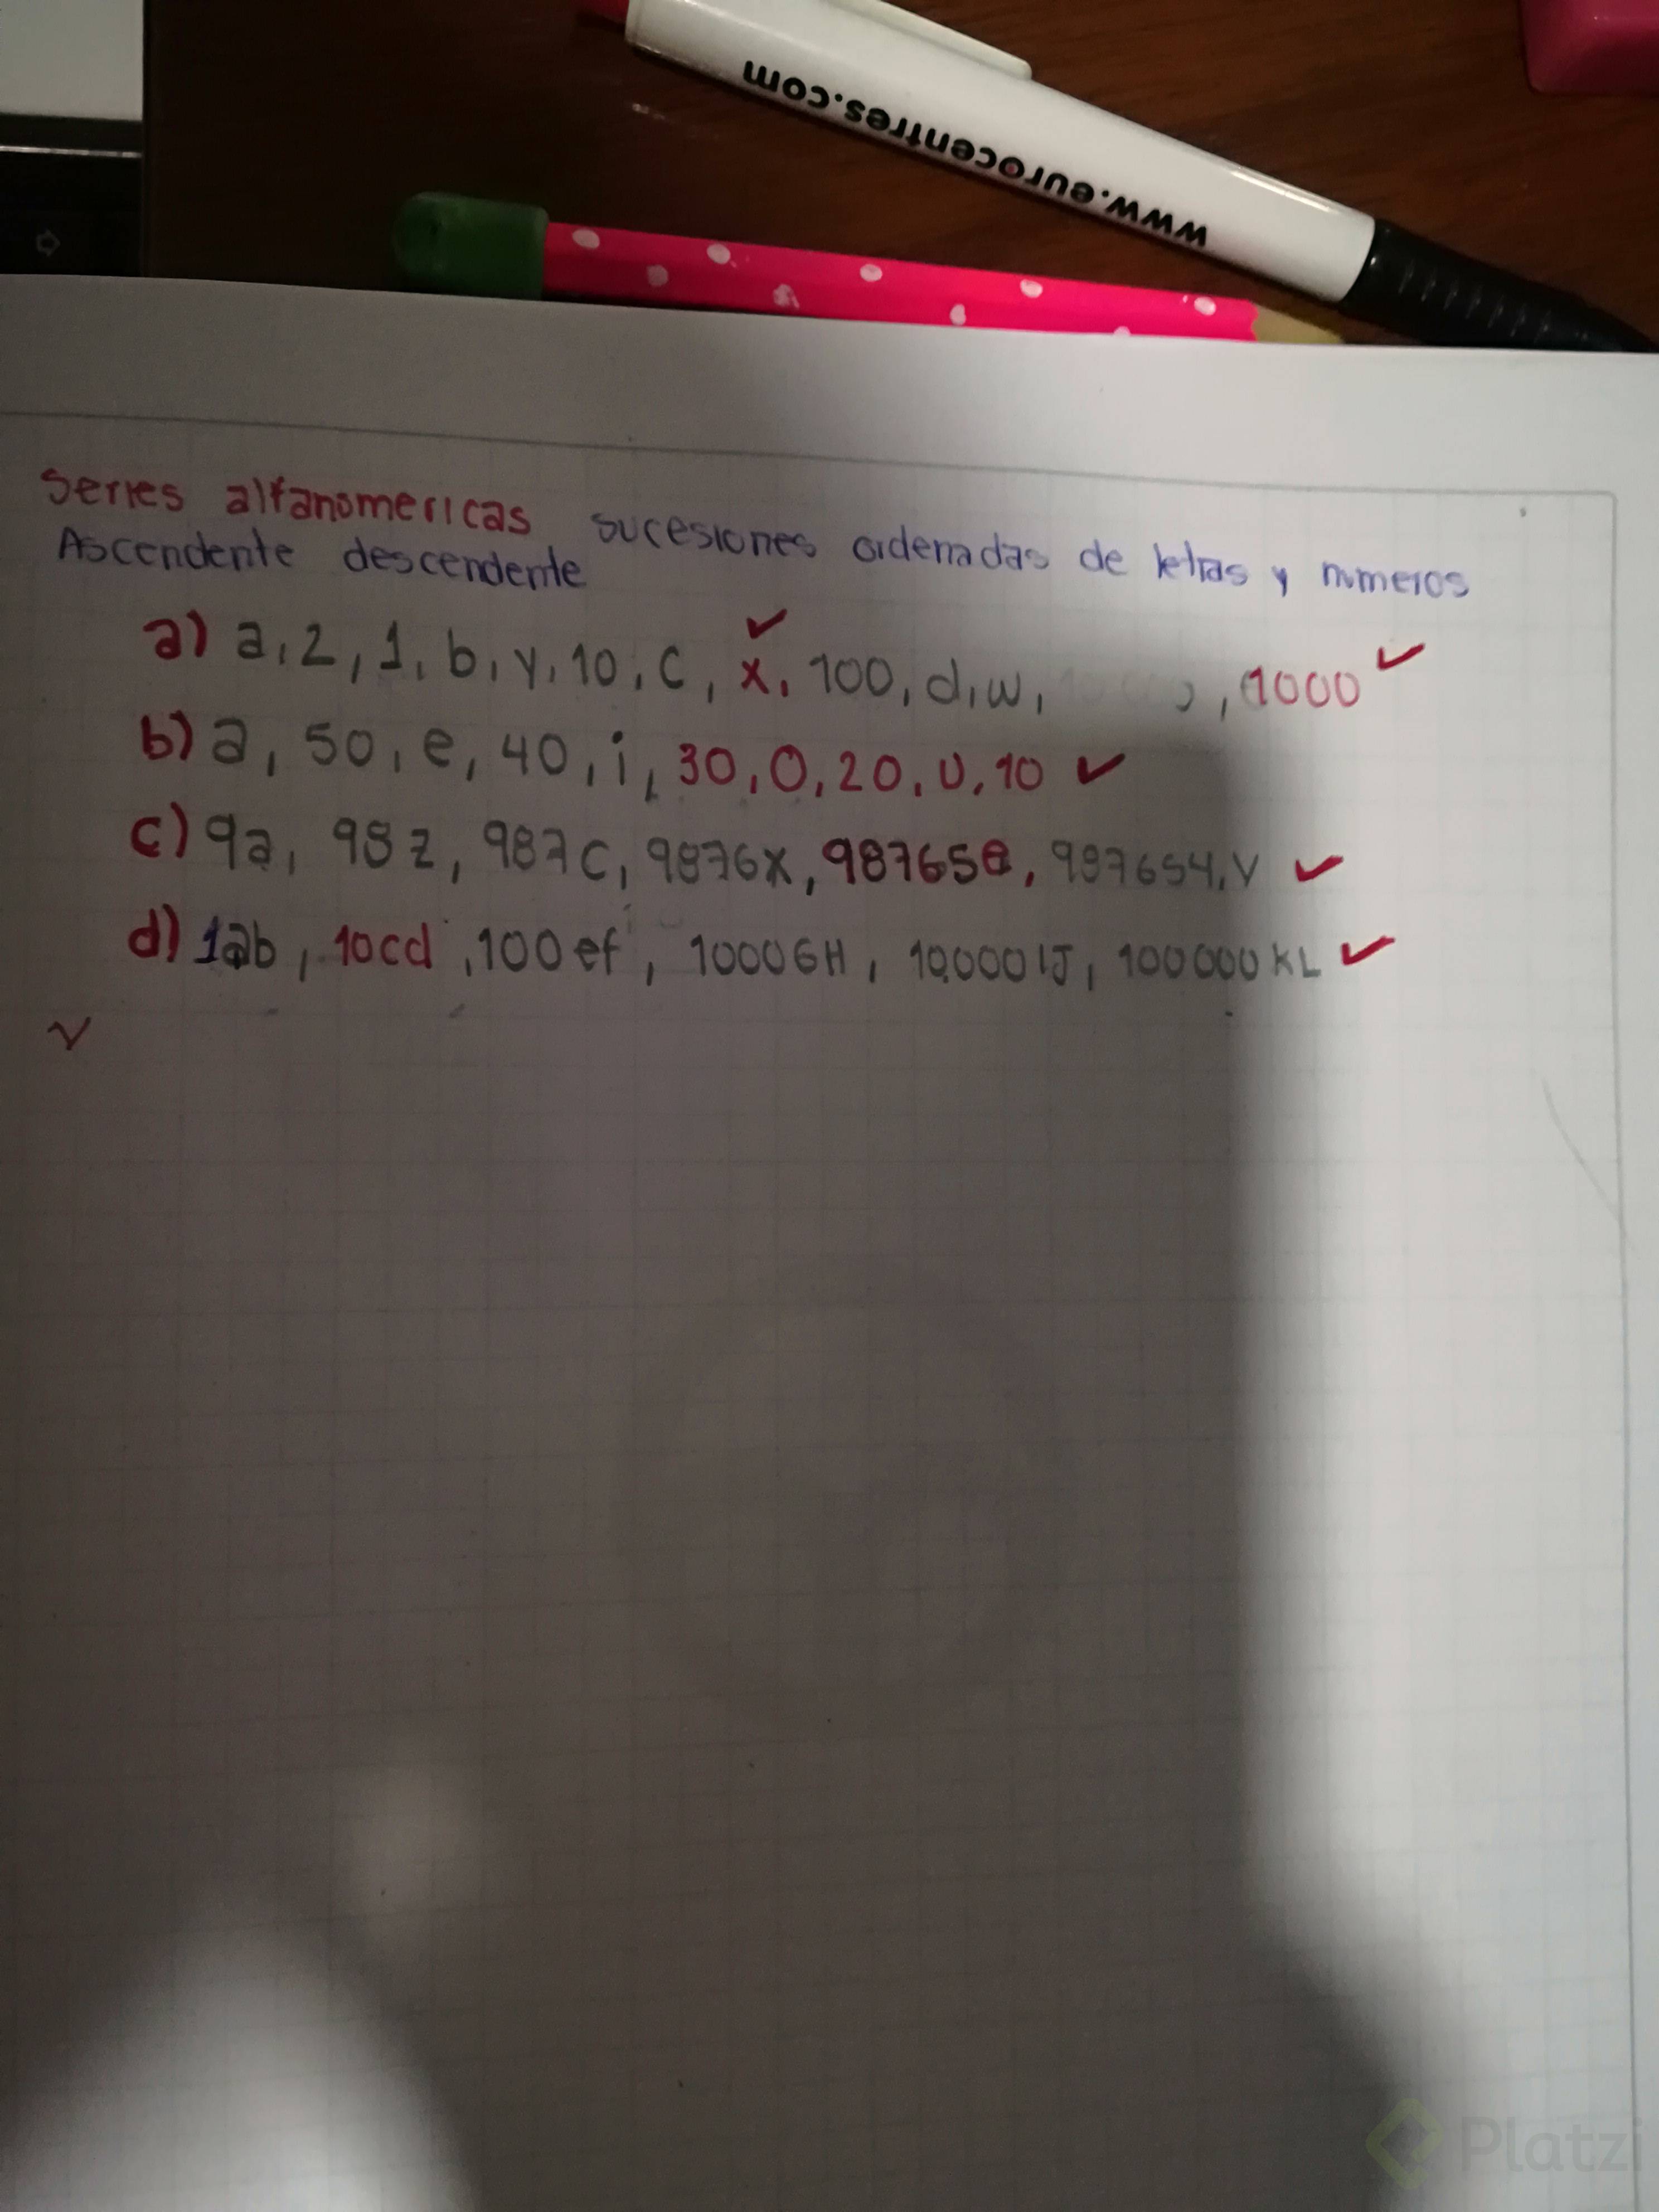 www.eurocentres.com
Series alfanomericas sucesiones ordenadas de letras y numeros
Ascendente descendente
a) a, 2, 1, b, y, 10, C, x, 100, d, w, , 1000
b) a, 50, e, 40, i, 30, O, 20, U, 10
c) 9a, 98z, 987C, 9876X, 98765e, 987654, V
d) 1ab, 10cd, 100ef, 1000GH, 10,000IJ, 100000KL
Platzi